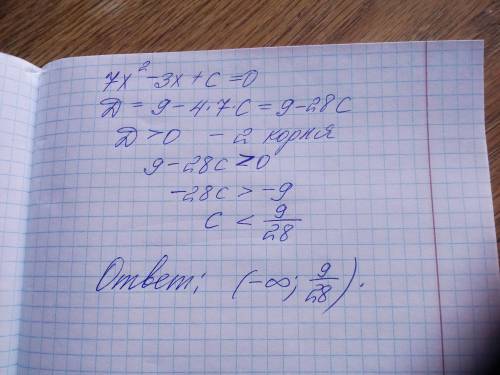 7x² - 3x + c = 0
D = 9 - 4·7·c = 9 - 28c
D > 0 - 2 корня
9 - 28c > 0
-28c > -9
c < 9/28
Ответ: (-∞; 9/28).